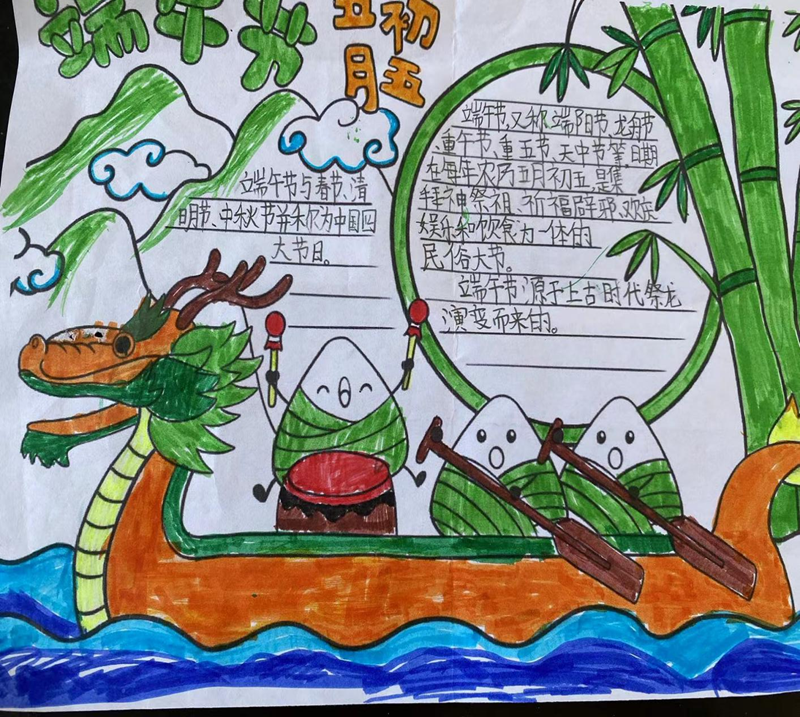 端午节
五月
初五
端午节与春节、清
明节、中秋节并称为中国四
大节日。
端午节,又称端阳节、龙舟节
、重午节、重五节、天中节等日期
在每年农历五月初五,是集
拜神祭祖、祈福辟邪、欢庆
娱乐和饮食为一体的
民俗大节。
端午节源于上古时代祭龙
演变而来的。